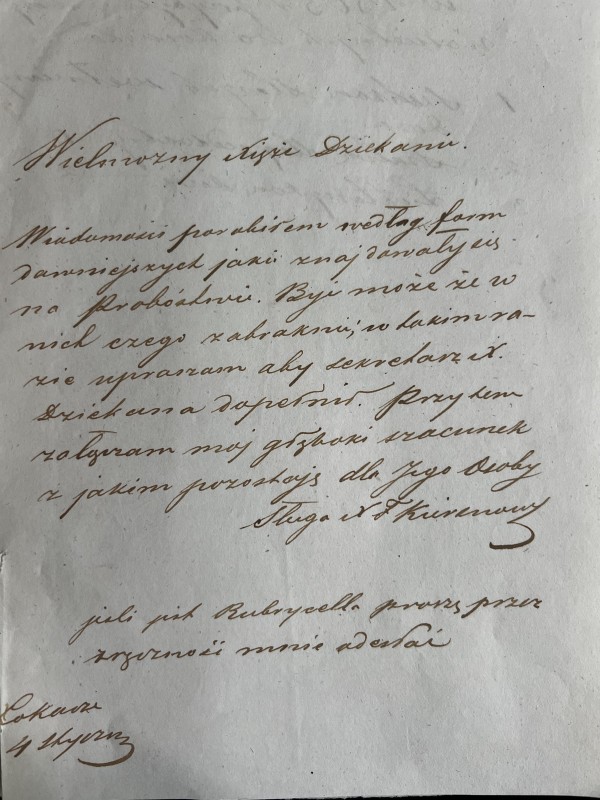 Wielmożny Xięże Dziekanie.
Wiadomości porobiłem według form
dawniejszych jakie znajdowały się
na Probóstwie. Być może że w
nich czego zabraknie; w takim ra-
zie upraszam aby sekretarz X.
Dziekana dopełnił. Przytem
załączam mój głęboki szacunek
z jakim pozostaję dla Jego Osoby
Sługa X F
jeśli jest Rubrycella proszę przez
zręczność mnie odesłać
4 Styczn